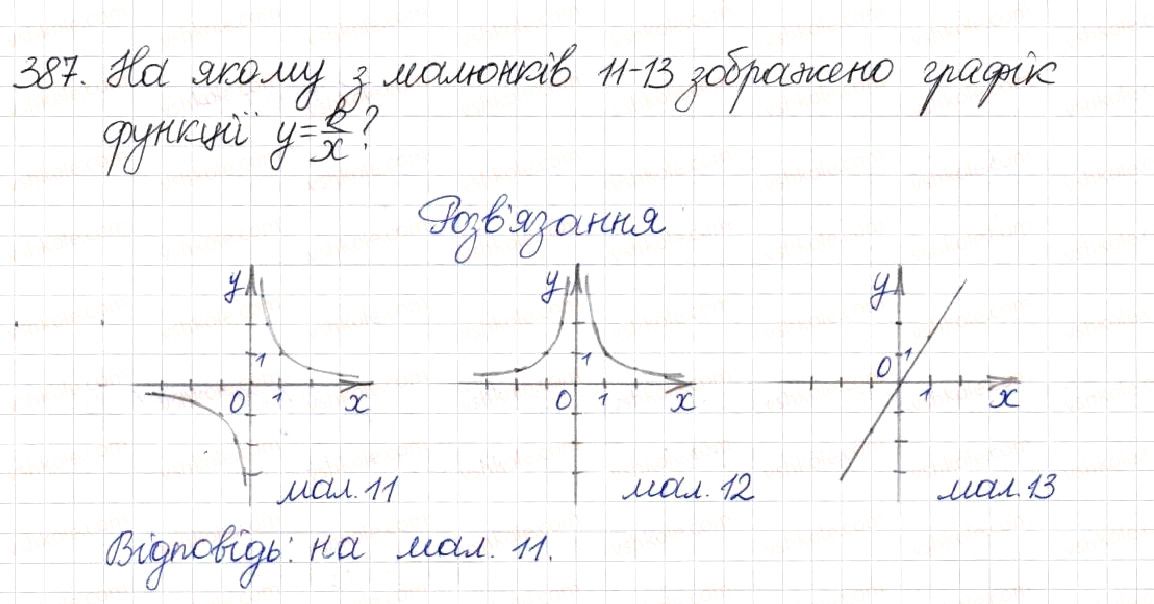 387. На якому з малюнків 11-13 зображено графік
функції y=k/x?
Розв'язання
y y y
1 1 0 1
0 1 x 0 1 x 1 x
мал. 11 мал. 12 мал. 13
Відповідь: на мал. 11.